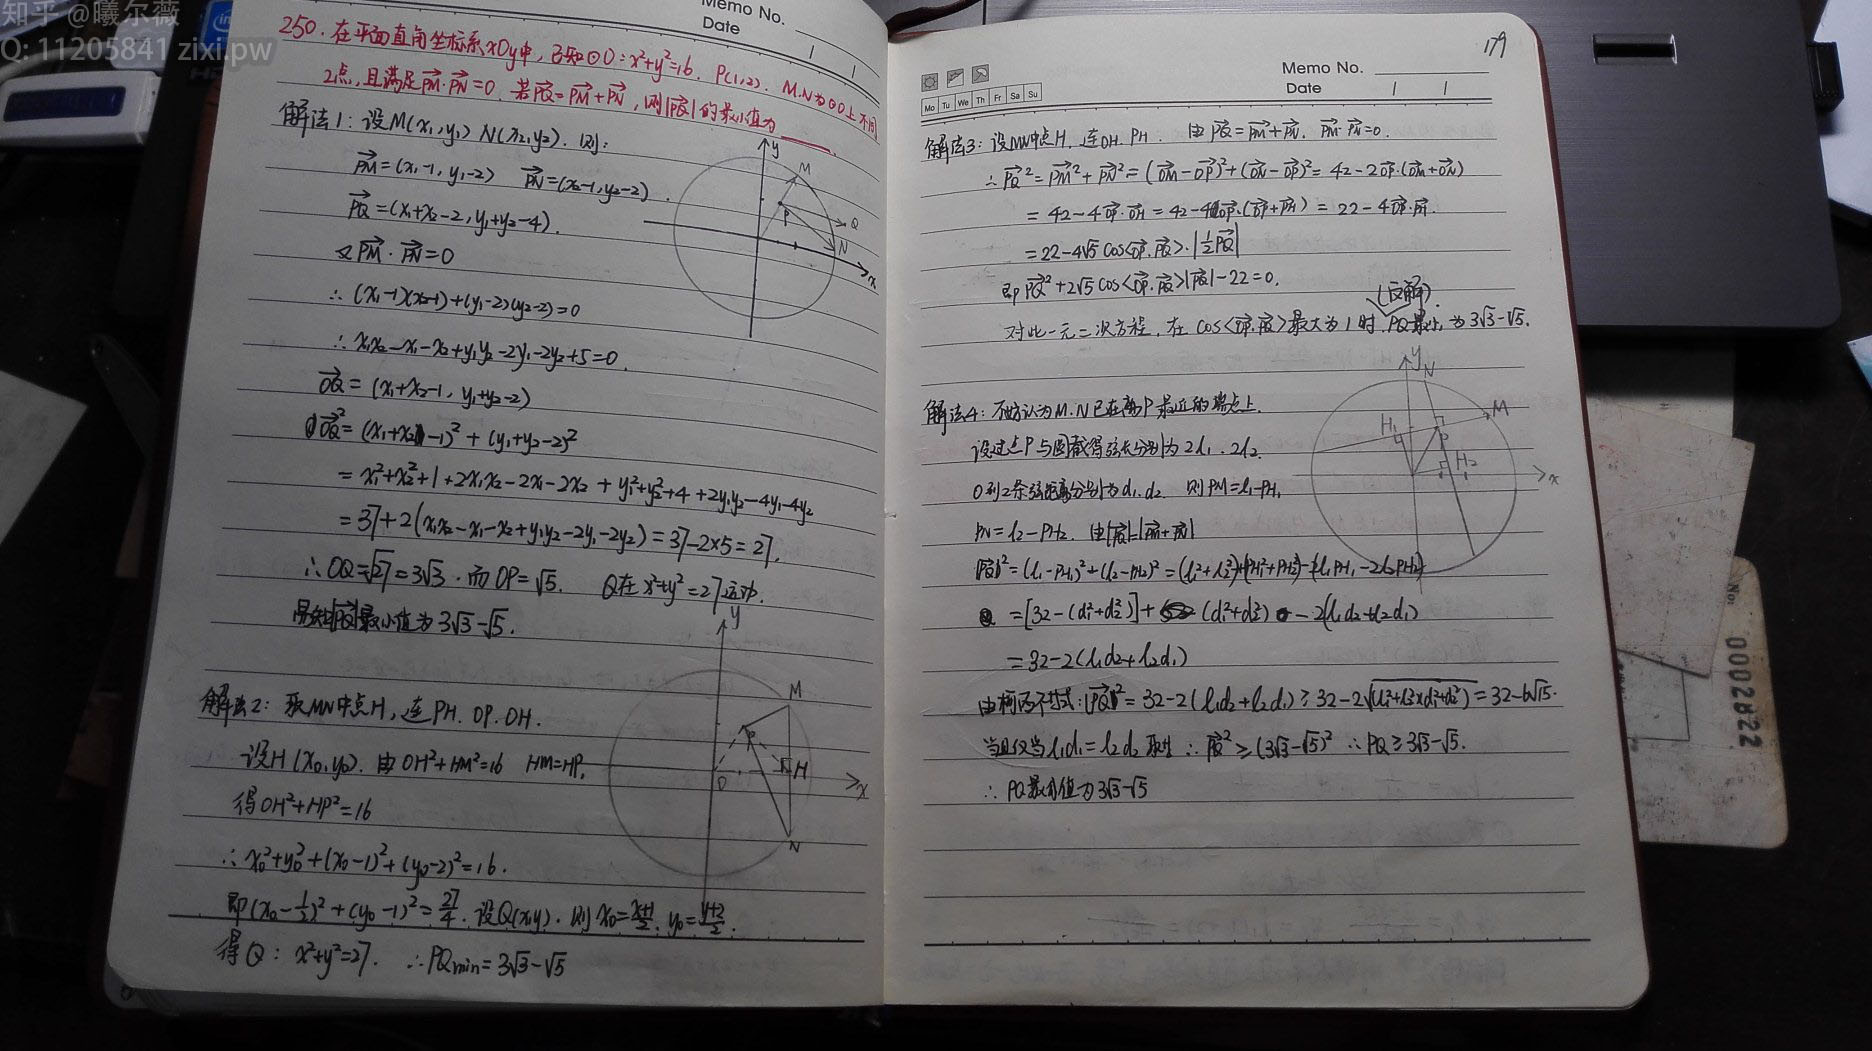 知乎 @曦尔薇
Q: 11205841 zixi.pw
Memo No.
Date
250. 在平面直角坐标系xOy中, 已知⊙O: x²+y²=16. P(1,2). M.N为⊙O上不同
2点, 且满足PM·PN=0. 若PQ=PM+PN, 则|PQ|的最小值为
解法1: 设M(x₁,y₁) N(x₂,y₂). 则:
PM=(x₁-1, y₁-2) PN=(x₂-1, y₂-2).
PQ=(x₁+x₂-2, y₁+y₂-4).
又PM·PN=0
∴ (x₁-1)(x₂-1)+(y₁-2)(y₂-2)=0
∴ x₁x₂-x₁-x₂+y₁y₂-2y₁-2y₂+5=0.
OQ=(x₁+x₂-1, y₁+y₂-2)
OQ²=(x₁+x₂-1)²+(y₁+y₂-2)²
=x₁²+x₂²+1+2x₁x₂-2x₁-2x₂+y₁²+y₂²+4+2y₁y₂-4y₁-4y₂
=37+2(x₁x₂-x₁-x₂+y₁y₂-2y₁-2y₂)=37-2×5=27.
∴OQ=√27=3√3. 而OP=√5. Q在x²+y²=27运动.
易知|PQ|最小值为3√3-√5.
y
M
P
Q
N
x
解法2: 取MN中点H, 连PH. OP. OH.
设H(x₀,y₀). 由OH²+HM²=16 HM=HP.
得OH²+HP²=16
∴ x₀²+y₀²+(x₀-1)²+(y₀-2)²=16.
即(x₀-1/2)²+(y₀-1)²=27/4. 设Q(x,y). 则x₀=(x+1)/2. y₀=(y+2)/2.
得Q: x²+y²=27. ∴PQmin=3√3-√5
y
M
P
O
H
x
N
179
Memo No.
Date
Mo Tu We Th Fr Sa Su
解法3: 设MN中点H, 连OH. PH. 由PQ=PM+PN. PM·PN=0.
∴PQ²=PM²+PN²=(OM-OP)²+(ON-OP)²=42-2OP·(OM+ON)
=42-4OP·OH=42-4OP·(OP+PH)=22-4OP·PH.
=22-4√5cos<OP.PQ>·|1/2PQ|
即PQ²+2√5cos<OP.PQ>|PQ|-22=0.
(反解).
对此一元二次方程, 在cos<OP.PQ>最大为1时, PQ最小, 为3√3-√5.
解法4: 不妨认为M.N已在离P最近的端点上.
设过点P与圆截得弦长分别为2l₁. 2l₂.
O到2条弦距离分别为d₁.d₂. 则PM=l₁-PH₁
PN=l₂-PH₂. 由|PQ|=|PM+PN|
|PQ|²=(l₁-PH₁)²+(l₂-PH₂)²=(l₁²+l₂²)+(PH₁²+PH₂²)-2l₁PH₁-2l₂PH₂
=[32-(d₁²+d₂²)]+(d₁²+d₂²)-2(l₁d₂+l₂d₁)
=32-2(l₁d₂+l₂d₁)
由柯西不等式: |PQ|²=32-2(l₁d₂+l₂d₁)≥32-2√(l₁²+l₂²)(d₁²+d₂²)=32-6√15.
当且仅当l₁d₁=l₂d₂取等 ∴PQ²≥(3√3-√5)² ∴PQ≥3√3-√5.
∴PQ最小值为3√3-√5
y
N
M
H₁
P
H₂
x
No:
0002822